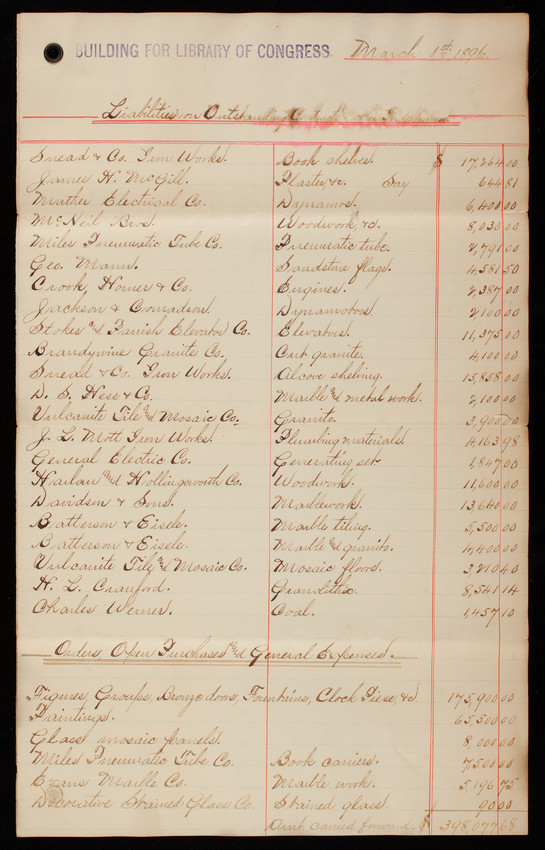 BUILDING FOR LIBRARY OF CONGRESS. March 1st 1896.
Liabilities on Outstanding
Snead & Co. Iron Works. Book shelves. $ 17,264 00
James H. McGill. Plaster, &c. Say 644 81
Mather Electrical Co. Dynamos. 6,400 00
McNeil Bros. Woodwork, &c. 8,030 00
Miles Pneumatic Tube Co. Pneumatic tube. 2,791 00
Geo. Mann. Sandstone flags. 4,581 50
Crook, Horner & Co. Engines. 2,387 00
Jackson & Dynamotors. 2,100 00
Stokes and Parrish Elevator Co. Elevators. 11,375 00
Brandywine Granite Co. Cut granite. 4,100 00
Snead & Co. Iron Works. Alcove shelving. 15,858 00
D. S. Hess & Co. Marble and metal work. 2,100 00
Vulcanite Tile and Mosaic Co. Granito. 3,900 00
J. L. Mott Iron Works. Plumbing materials. 4,163 98
General Electric Co. Generating set. 1,847 00
Harlan and Hollingsworth Co. Woodwork. 11,600 00
Davidson & Sons. Marblework. 13,640 00
Batterson & Eisele. Marble tiling. 5,500 00
Batterson & Eisele. Marble and granito. 4,400 00
Vulcanite Tile and Mosaic Co. Mosaic floors. 3,210 40
H. L. Cranford. Granolithic. 8,541 14
Charles Werner. Coal. 1,457 10
Orders, Open Purchases and General Expenses.
Figures, Groups, Bronze doors, Fountains, Clock Piese, &c. 175,900 00
Paintings. 65,500 00
Glass mosaic panels. 8,000 00
Miles Pneumatic Tube Co. Book carriers. 7,500 00
Evans Marble Co. Marble work. 5,196 75
Decorative Stained Glass Co. Stained glass. 90 00
Amt. carried forward. $ 398,077 68